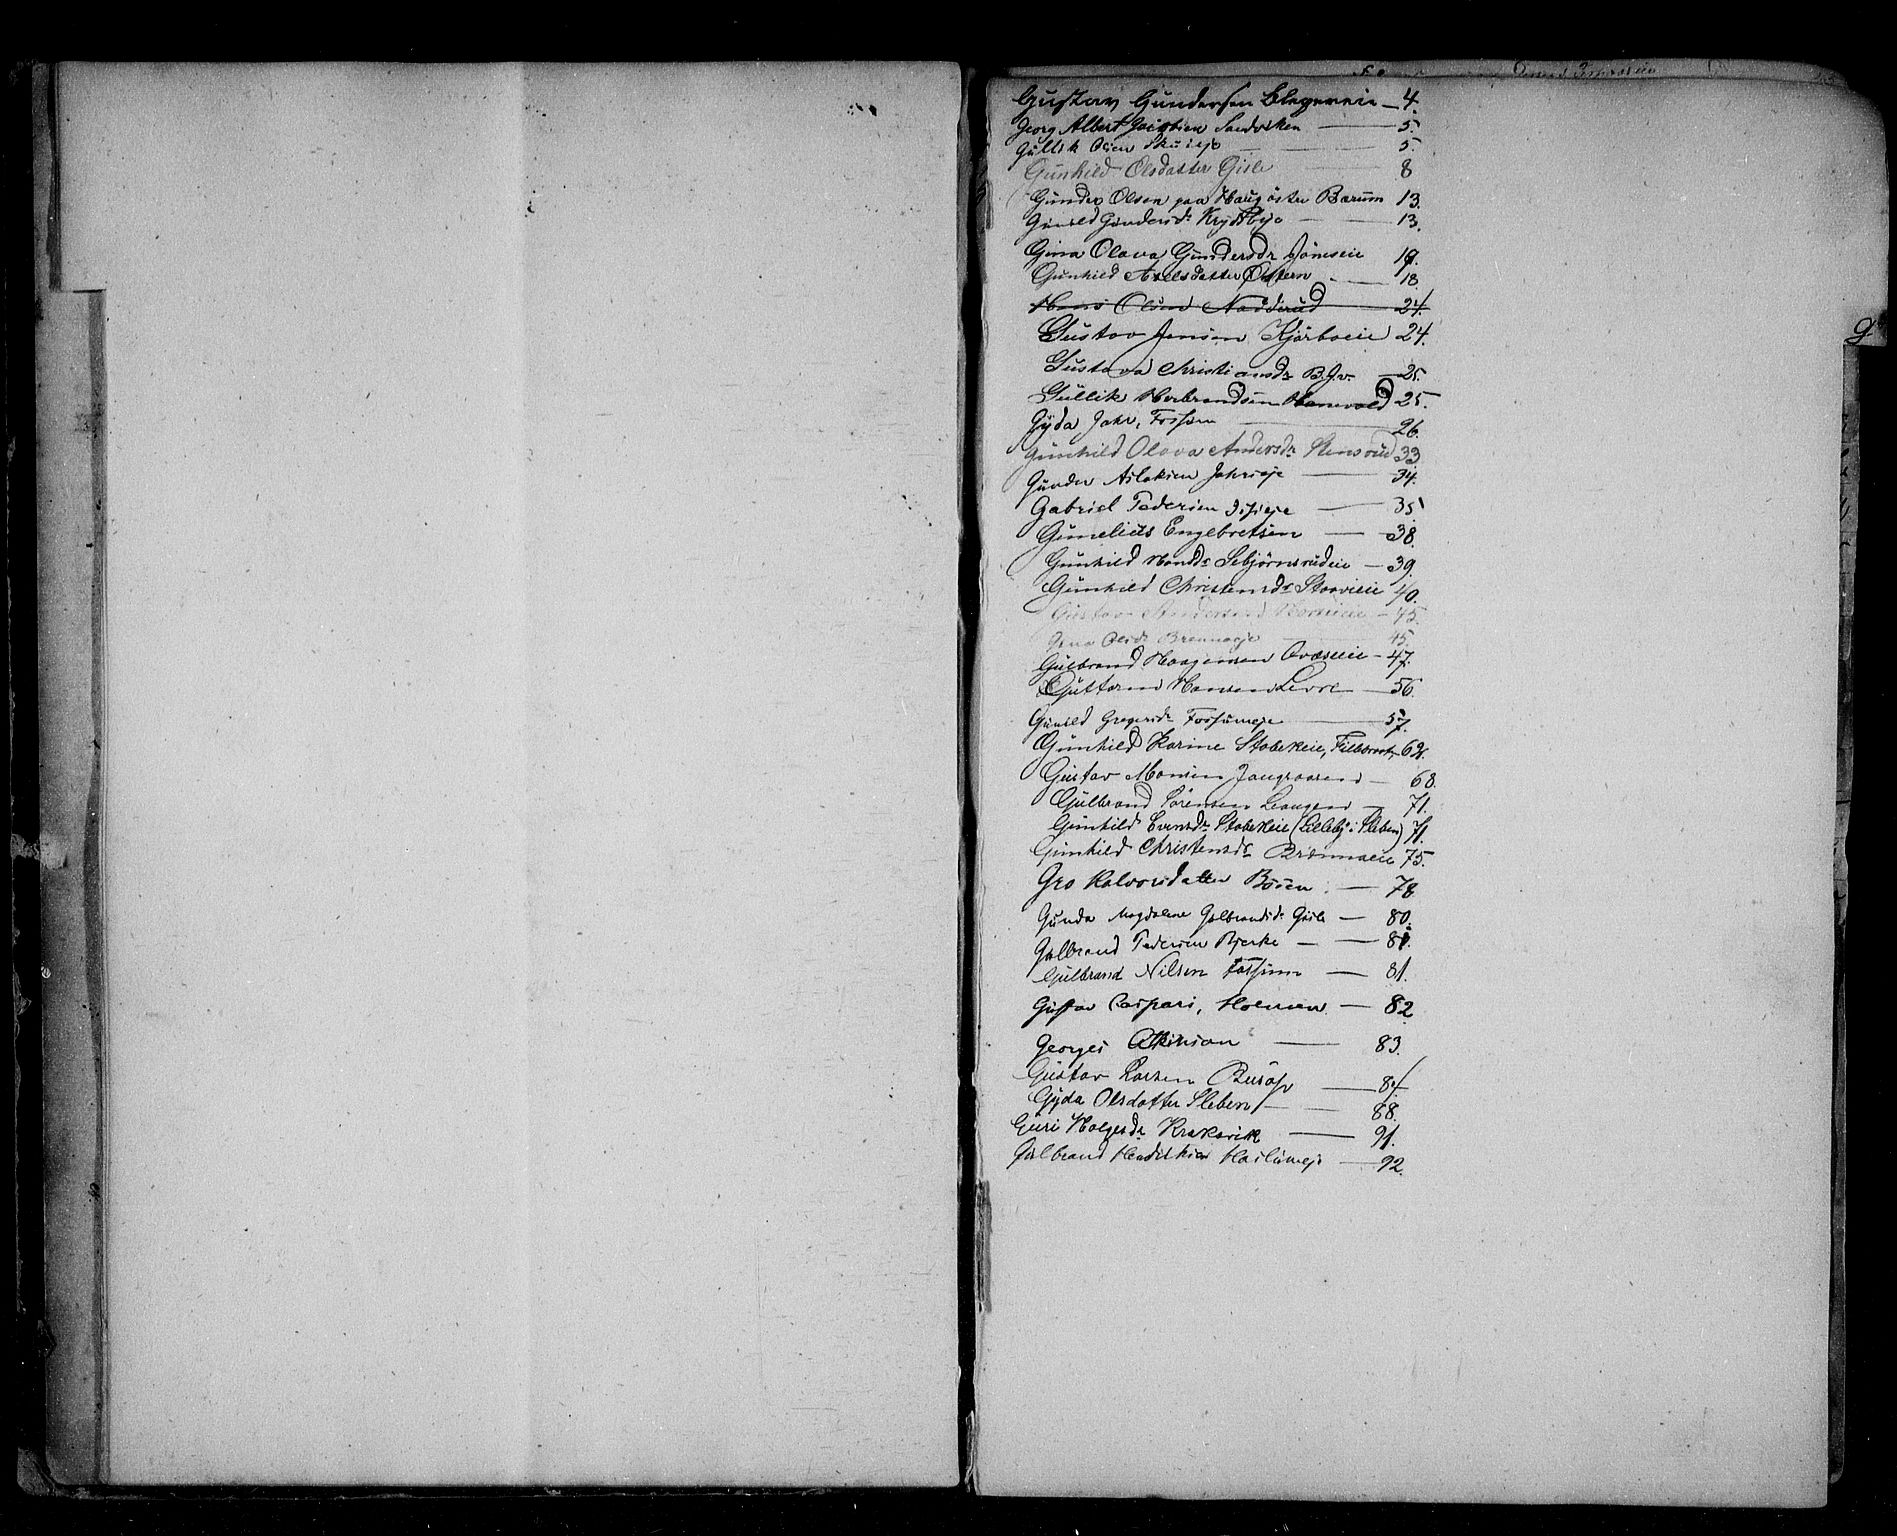 Gustav Gundersen Blegereie - 4.
Georg Albert Jacobsen Sandviken - 5.
Gullik Olsen - 5.
Gunhild Olsdatter Gisle 8
Gunder Olsen paa Haug östre Bærum 13.
Gunild Gundersdr Krydsbye - 13.
Gina Olava Gundersdr Jönseie 17.
Gunhild Axelsdatter Östern - 18.
Hans Olsen Nadderud 24.
Gustav Jensen Kjörboeie 24.
Gustava Christiansdr B.Jv. - 25.
Gullik Herbrandsen Hanevold 25.
Gyda Jahr, Fossum - 26.
Gunhild Olava Andersdr Stensrud 33
Gunder Aslaksen Jahreje - 34.
Gabriel Pedersen - 35
Gunelius Engebretsen - 38.
Gunhild Hansdr Sebjörnsrudeie - 39.
Gunhild Christensdr Stovieie 40.
Gustav Andersen - 45.
Gina Olsdr Brennaeje 45.
Gulbrand Haagensen Ovæseie - 47.
Guttorm Hansen Levre - 56.
Gunild Gregersdr Fossumeje - 57.
Gunhild Karine Stabekeie, 62.
Gustav Monsen - 68.
Gulbrand Sörensen Leangen - 71.
Gunhild Evensdr Stabekeie (Lilleby i Sleben) 71.
Gunhild Christensdr Brönnaeie 75.
Gro Halvorsdatter Böien. - 78.
Gunda Magdalene Gulbrandsdr Gisle - 80.
Gulbrand Pedersen Bjerke - 81.
Gulbrand Nilsen Fossum - 81.
Gustav Caspari, Holmen - 82.
Georges Atkinson - 83.
Gustav Larsen - 84.
Gyda Olsdatter Sleben - 88.
Guri Holgersdr Kraksvik - 91.
Gulbrand Haslumeje - 92.
G